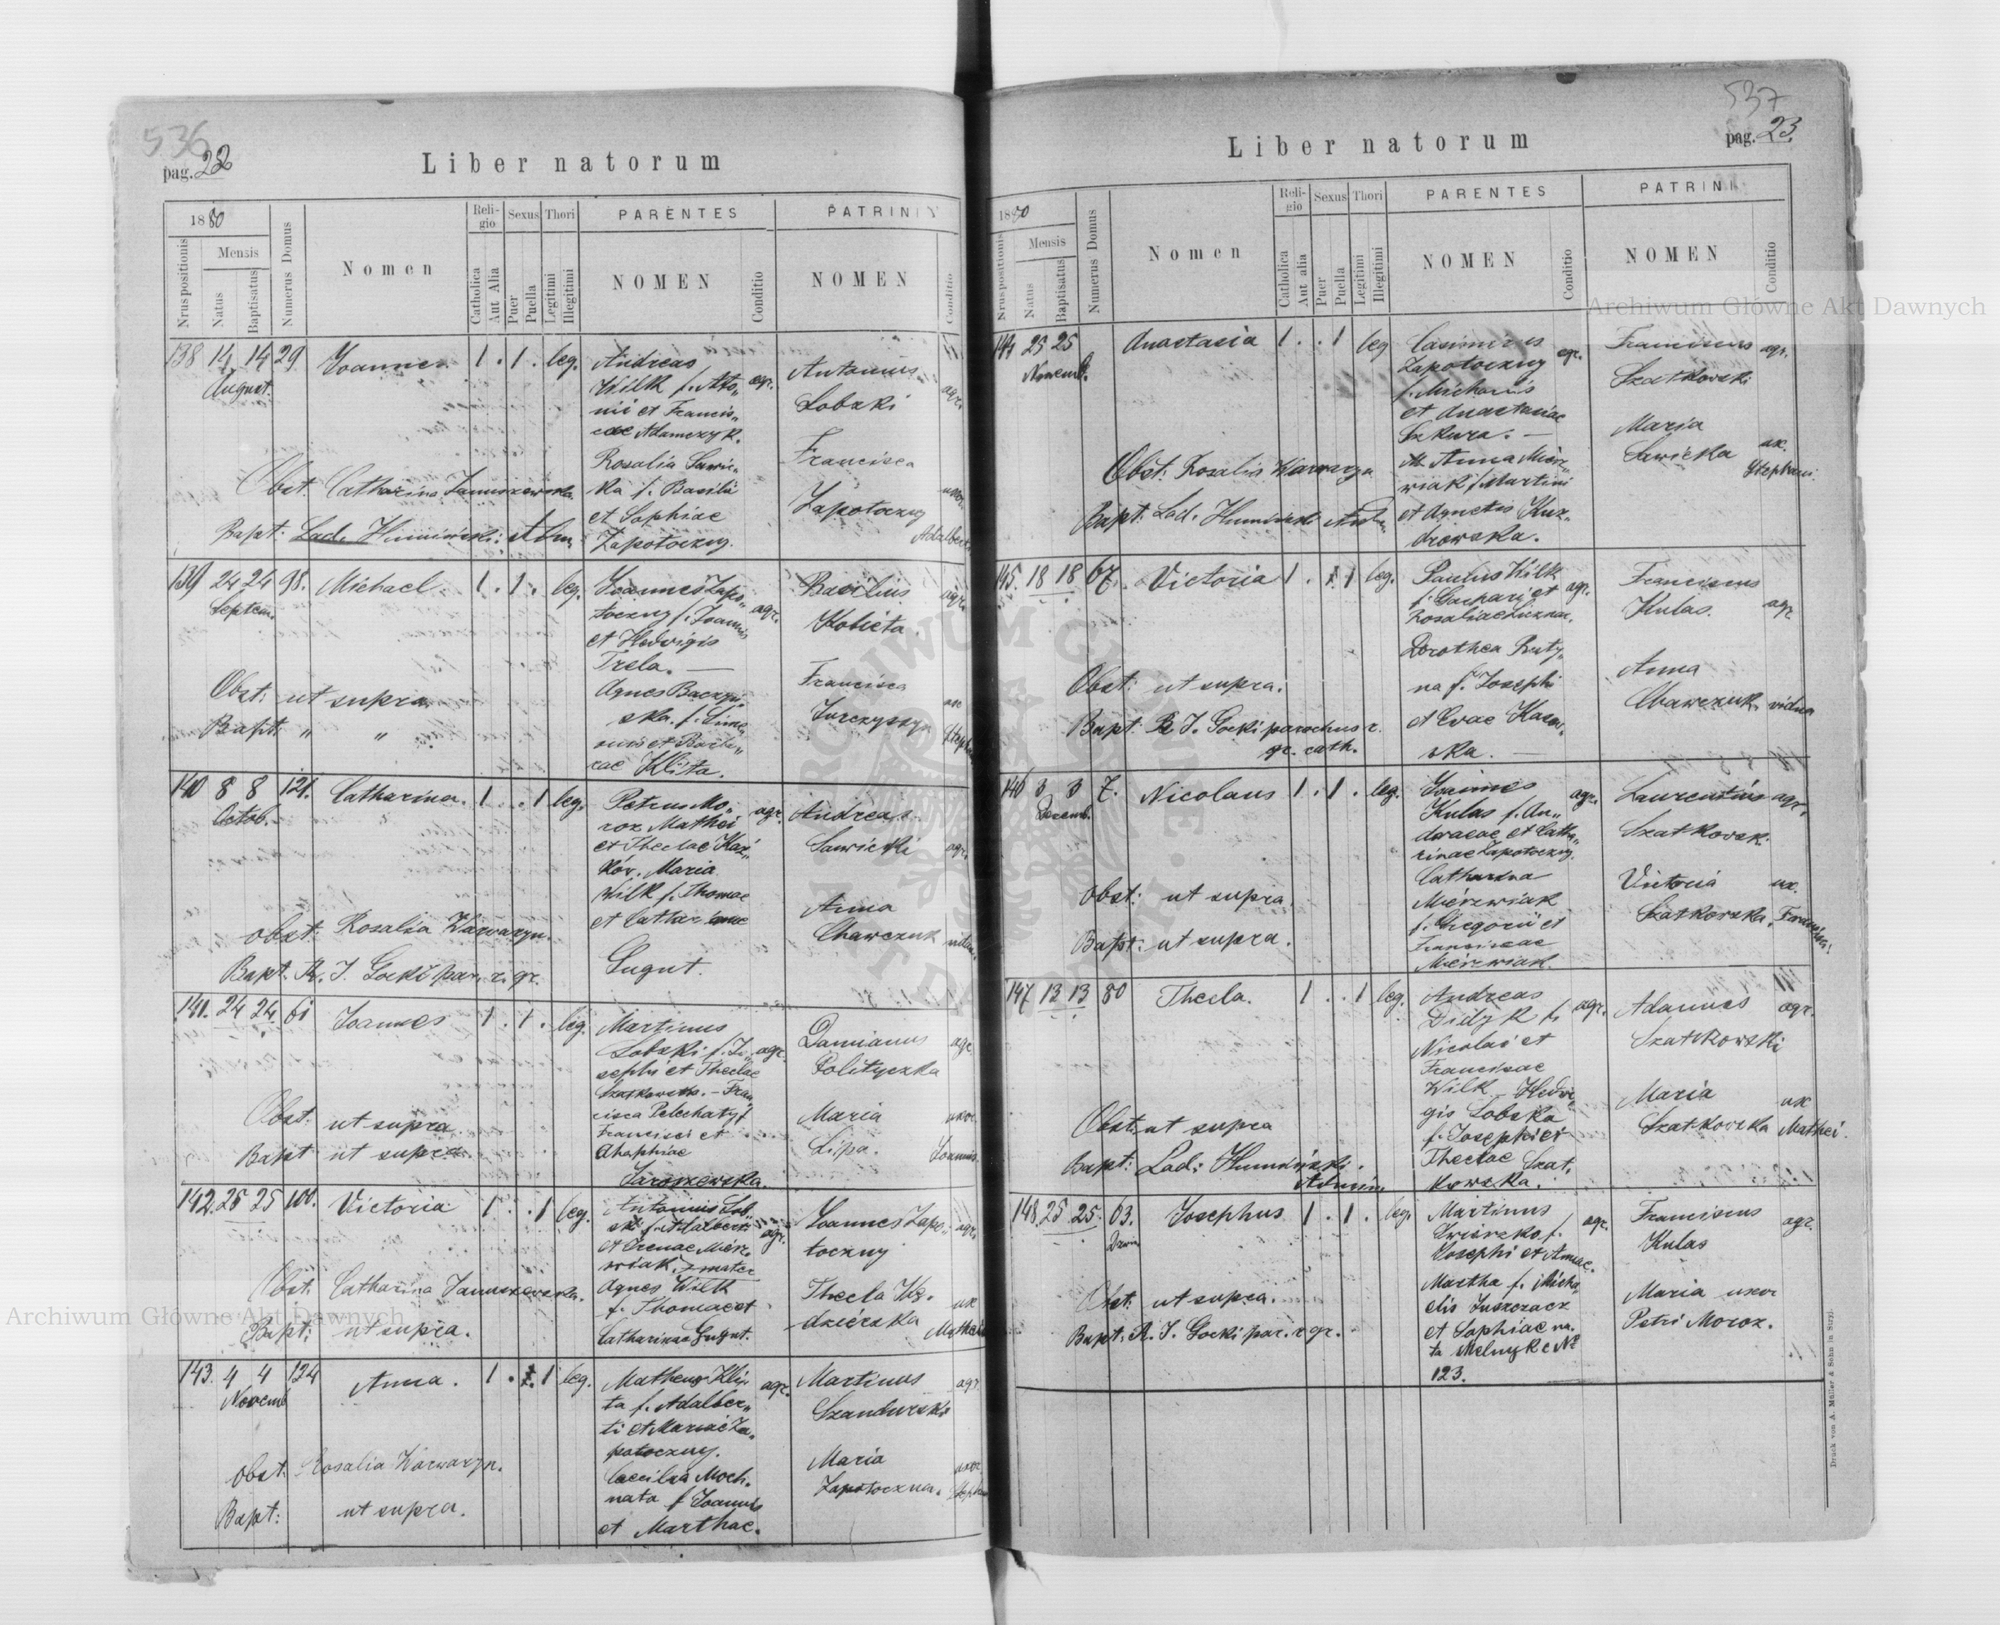 536
pag. 22
Liber natorum
1880
Nrus positionis
Mensis
Natus
Baptisatus
Numerus Domus
Nomen
Religio
Catholica
Aut Alia
Sexus
Puer
Puella
Thori
Legitimi
Illegitimi
PARENTES
NOMEN
Conditio
PATRINI
NOMEN
Conditio
138 14 14 29 Joannes 1 . 1 . leg.
August.
Andreas
Wilk f. Ato„
nii et Francis„
cae Adamczyk.
Rosalia Sawic„
ka f. Basilii
et Sophiae
Zapotoczny.
agr.
Antonius
Lobski
agr.
Francisca
Zapotoczny
uxor
Adalberti
Obst: Catharina Januszewska
Bapt: Lad. Humiński Adm.
139 24 24 98. Michael 1 . 1 . leg.
Septem.
Joannes Zapo„
toczny f. Joannis
et Hedvigis
Trela. —
Agnes Baczyń„
ska f. Sime„
onis et Barba„
rae Klista.
agr.
Basilius
Kobieta
agr.
Francisca
Jurczyszyn
ux
Stephani
Obst: ut supra
Bapt: „ „
140 8 8 121. Catharina. 1 . . 1 leg.
Octob.
Petrus Mo„
roz Mathei
et Theclae Kaź„
ków. Maria
Wilk f. Thomae
et Catharinae
Gugut.
agr.
Andreas
Sawicki
agr.
Anna
Chawczuk vidua
Obst: Rosalia Warwaryn.
Bapt. R. J. Gocki par. r. gr.
141. 24 24 61 Joannes 1 . 1 . leg.
Martinus
Lobski f. Jo„
sephi et Theclae
Szatkowska. — Fran„
cisca Pelechaty f.
Francisci et
Ahaphiae
Jaroszewska.
agr.
Damianus
Polityczka
agr
Maria
Lipa.
uxor
Joannis.
Obst: ut supra
Bapt ut supra
142. 25 25 100. Victoria 1 . . 1 leg.
Antonius Lob„
ski f. Adalberti
et Irenae Mierz„
wiak, mater
Agnes Wilk
f. Thomae et
Catharinae Gugut.
agr.
Joannes Zapo„
toczny
agr.
Thecla
ux
Mathei
Obst: Catharina Januszewska.
Bapt: ut supra.
143. 4 4 124 Anna. 1 . . 1 leg.
Novemb
Matheus Klis„
ta f. Adalber„
ti et Mariae Za„
potoczny.
Caecilia Moch„
nata f Joannis
et Marthae.
agr.
Martinus
Szandurski
agr
Maria
Zapotoczna.
uxor
Stephani
Obst: Rosalia Warwaryn.
Bapt: ut supra.
537
pag. 23.
Liber natorum
1880
Nrus positionis
Mensis
Natus
Baptisatus
Numerus Domus
Nomen
Religio
Catholica
Aut alia
Sexus
Puer
Puella
Thori
Legitimi
Illegitimi
PARENTES
NOMEN
Conditio
PATRINI
NOMEN
Conditio
144 23 25 Anastasia 1 . . 1 leg
Novemb.
Casimirus
Zapotoczny
f. Michaelis
et Anastasiae
Szkura. —
M. Anna Mierz„
wiak f Martini
et Agnetis Kuz„
drowska.
agr.
Franciscus
Szatkowski
agr.
Maria
Sawicka
ux.
Stephani.
Obst: Rosalia Warwaryn
Bapt: Lad. Humiński Adm
145. 18 18 67. Victoria 1 . 1 leg.
Paulus Wilk
f. Gaspari et
Rosaliae Licznar.
Dorothea Ruty„
na f. Josephi
et Evae
ska. —
agr.
Franciscus
Kulas.
agr
Anna
Chawczuk. vidua
Obst: ut supra.
Bapt. R J. Gocki parochus r.
gr. cath.
146 3 3 7. Nicolaus 1 . 1 . leg.
Decemb.
Joannes
Kulas f. An„
dreae et Catha„
rinae Zapotoczny.
Catharina
Mierzwiak
f. Gregorii et
Franciscae
Mierzwiak.
agr.
Laurentius
Szatkowsk.
agr.
Victoria
Szatkowska, Francisci.
ux.
Obst: ut supra
Bapt: ut supra.
147 13 13 80 Thecla. 1 . . 1 leg.
Andreas
Didyk f.
Nicolai et
Franciscae
Wilk Hedvi„
gis Lobska
f. Josephi et
Theclae Szat„
kowska.
agr.
Adamus
Szatkowski
agr.
Maria
Szatkowska
ux
Mathei.
Obst: ut supra
Bapt: Lad: Humiński.
Admin.
148. 25 25. 63. Josephus 1 . 1 . leg.
Martinus
f.
Josephi et Annae.
Martha f. Micha„
elis Juszczacz
et Sophiae na„
ta Melnyk e No
123.
agr.
Franciscus
Kulas
agr.
Maria uxor
Petri Moroz.
Obst: ut supra.
Bapt: R. J. Gocki par. r gr.
Druck von A. Müller & Sohn in Stryj.
Archiwum Główne Akt Dawnych
Archiwum Główne Akt Dawnych
ARCHIWUM GŁÓWNE · AKT DAWNYCH